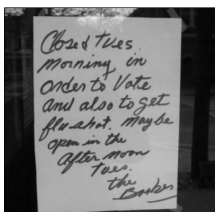 Closed tues.
morning in
order to Vote
and also to get
flu shot. maybe
open in the
after noon
tues.
the